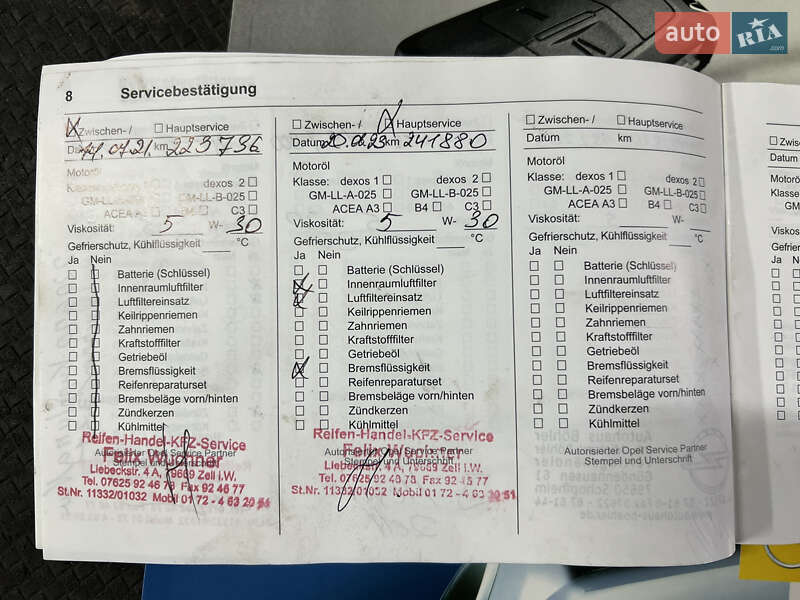 auto RIA.com
8 Servicebestätigung
Zwischen-/ Hauptservice
km 223 736
Motoröl
dexos 2
GM-LL-A-025 GM-LL-B-025
ACEA A3 B4 C3
Viskosität: 5 W- 30
Gefrierschutz, Kühlflüssigkeit °C
Ja Nein
Batterie (Schlüssel)
Innenraumluftfilter
Luftfiltereinsatz
Keilrippenriemen
Zahnriemen
Kraftstofffilter
Getriebeöl
Bremsflüssigkeit
Reifenreparaturset
Bremsbeläge vorn/hinten
Zündkerzen
Kühlmittel
Reifen-Handel-KFZ-Service
Autorisierter Opel Service Partner
Felix
Stempel und Unterschrift
Liebeckstr. 4 A, 79669 Zell i.W.
Tel. 07625 92 46 78 Fax 92 46 77
St.Nr. 11332/01032 Mobil 01 72 - 4 63 20 51
Zwischen-/ Hauptservice
Datum km 241880
Motoröl
Klasse: dexos 1 dexos 2
GM-LL-A-025 GM-LL-B-025
ACEA A3 B4 C3
Viskosität: 5 W- 30
Gefrierschutz, Kühlflüssigkeit °C
Ja Nein
Batterie (Schlüssel)
Innenraumluftfilter
Luftfiltereinsatz
Keilrippenriemen
Zahnriemen
Kraftstofffilter
Getriebeöl
Bremsflüssigkeit
Reifenreparaturset
Bremsbeläge vorn/hinten
Zündkerzen
Kühlmittel
Reifen-Handel-KFZ-Service
Autorisierter Opel Service Partner
Felix
Stempel und Unterschrift
Liebeckstr. 4 A, 79669 Zell i.W.
Tel. 07625 92 46 78 Fax 92 46 77
St.Nr. 11332/01032 Mobil 01 72 - 4 63 20 51
Zwischen-/ Hauptservice
Datum km
Motoröl
Klasse: dexos 1 dexos 2
GM-LL-A-025 GM-LL-B-025
ACEA A3 B4 C3
Viskosität: W-
Gefrierschutz, Kühlflüssigkeit °C
Ja Nein
Batterie (Schlüssel)
Innenraumluftfilter
Luftfiltereinsatz
Keilrippenriemen
Zahnriemen
Kraftstofffilter
Getriebeöl
Bremsflüssigkeit
Reifenreparaturset
Bremsbeläge vorn/hinten
Zündkerzen
Kühlmittel
Autorisierter Opel Service Partner
Stempel und Unterschrift
Datum
Motoröl
Klasse:
Ja